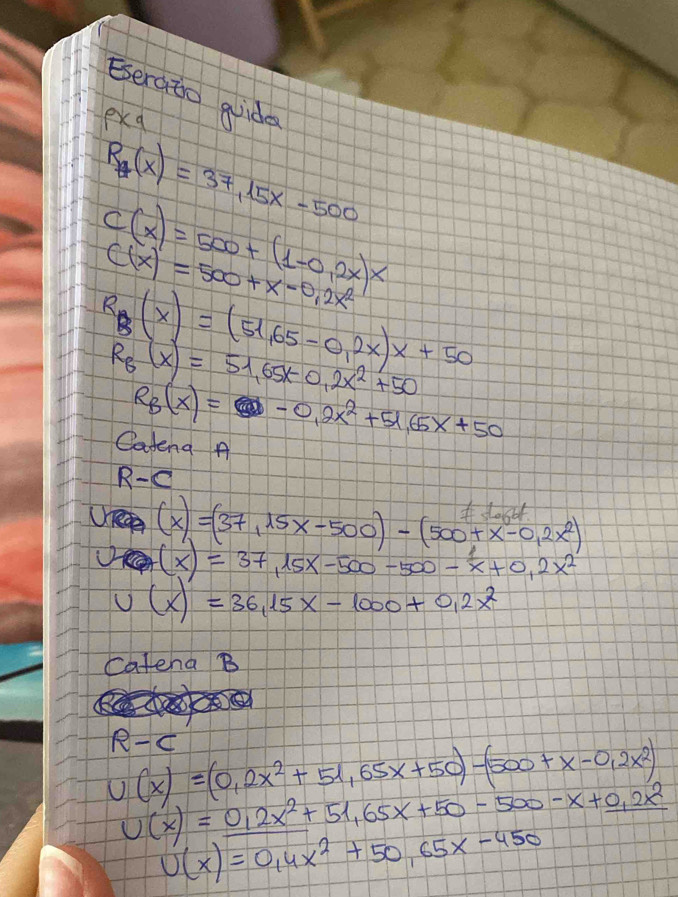 Esercizio guida
R_A(x) = 37,15x - 500
C(x) = 500 + (1-0,2x)x
C(x) = 500 + x - 0,2x²
R_B(x) = (51,65 - 0,2x)x + 50
R_B(x) = 51,65x - 0,2x² + 50
R_B(x) = - 0,2x² + 51,65x + 50
Catena A
R-C
U(x) = (37,15x - 500) - (500 + x - 0,2x²)
U(x) = 37,15x - 500 - 500 - x + 0,2x²
U(x) = 36,15x - 1000 + 0,2x²
Catena B
R-C
U(x) = (0,2x² + 51,65x + 50) - (500 + x - 0,2x²)
U(x) = 0,2x² + 51,65x + 50 - 500 - x + 0,2x²
U(x) = 0,4x² + 50,65x - 450